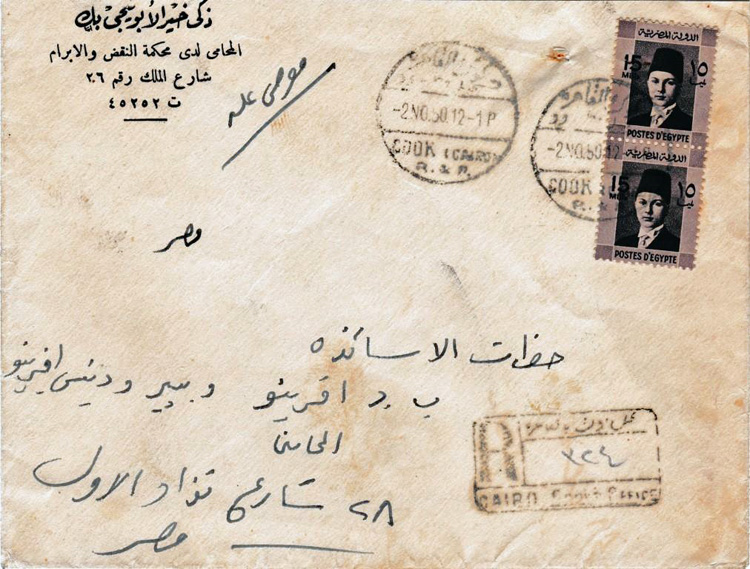 زكى خير الأبوتيجى بك
المحامى لدى محكمة النقض والابرام
شارع الملك رقم ٢٦
ت ٤٥٢٥٢
موصى عليه
مصر
-2.NO.50.12-1P
COOK (CAIRO)
R. & P.
-2.NO.50.12
COOK
R. & P.
الدولة المصرية
15 ١٥
MILL
POSTES D'EGYPTE
الدولة المصرية
15 ١٥
MILL
POSTES D'EGYPTE
حضرات الاساتذه
ب. د افرينو و بيير و دينيس افرينو
المحامين
٢٨ شارع فؤاد الاول
مصر
R
٣٢٤
CAIRO Cook's Office